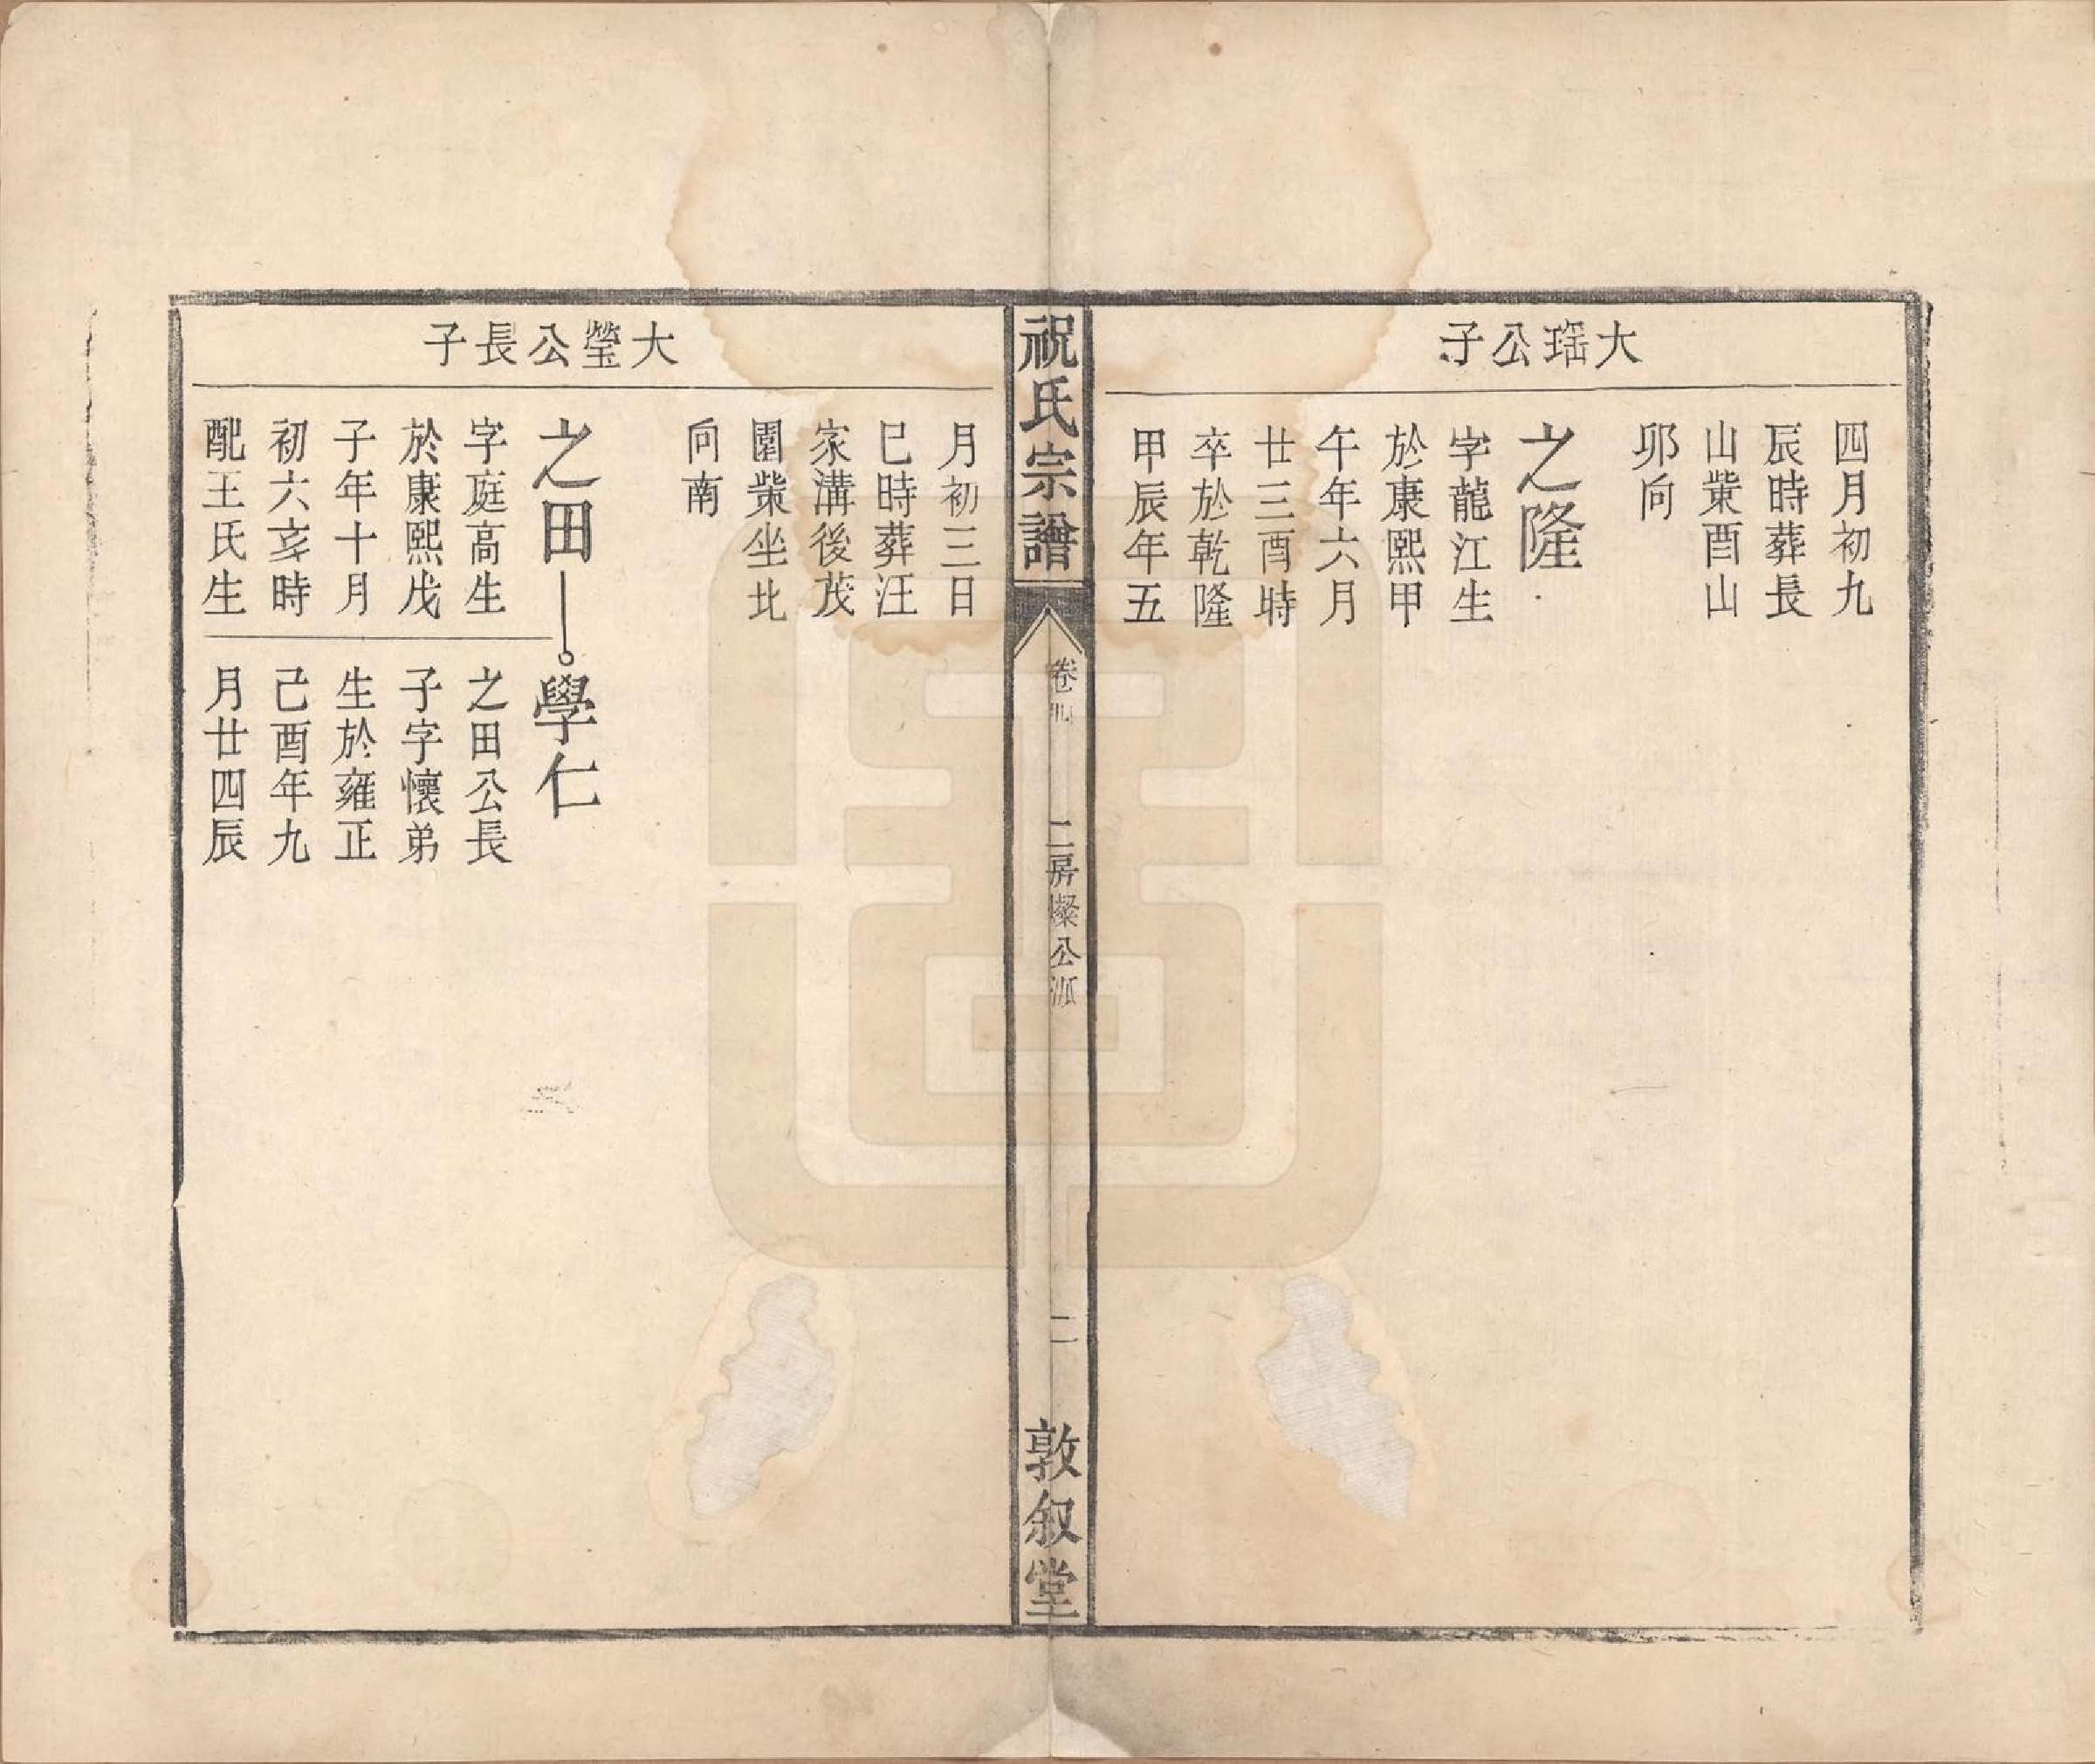 大瑤公子
四月初九
辰時葬長
山棠酉山
卯向
之隆
字龍江生
於康熙甲
午年六月
廿三酉時
卒於乾隆
甲辰年五
祝氏宗譜
卷四
二房燦公派
二
敦叙堂
月初三日
巳時葬汪
家溝後茂
園棠坐北
向南
大瑩公長子
之田
字庭高生
於康熙戊
子年十月
初六亥時
配王氏生
學仁
之田公長
子字懷弟
生於雍正
己酉年九
月廿四辰